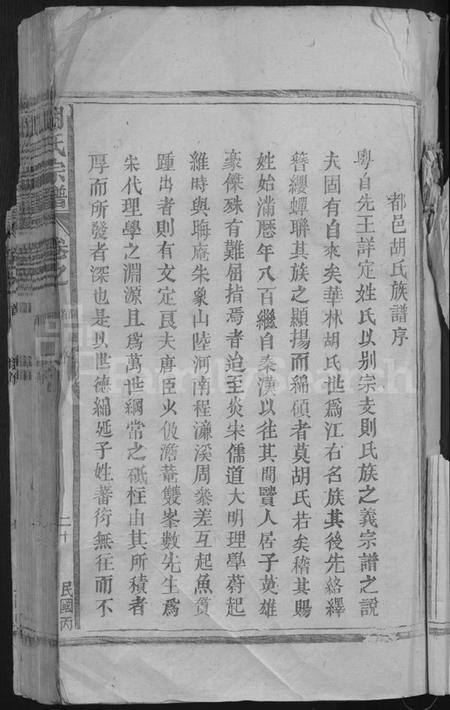 都邑胡氏族譜序
粵自先王詳定姓氏以别宗支則氏族之義宗譜之說
夫固有自來矣華林胡氏世爲江右名族其後先絡繹
簪纓蟬聯其族之顯揚而綿碩者莫胡氏若矣稽其賜
姓始滿歷年八百繼自秦漢以往其間賢人居子英雄
豪傑殊有難屈指焉者迨至炎宋儒道大明理學蔚起
維時與晦庵朱象山陸河南程濂溪周叅差互起魚貫
踵出者則有文定艮夫唐臣火伋澹菴雙峯數先生爲
宋代理學之淵源且爲萬世綱常之砥柱由其所積者
厚而所發者深也是以世德綿延子姓蕃衍無往而不
胡氏宗譜
卷之
二十
民國丙